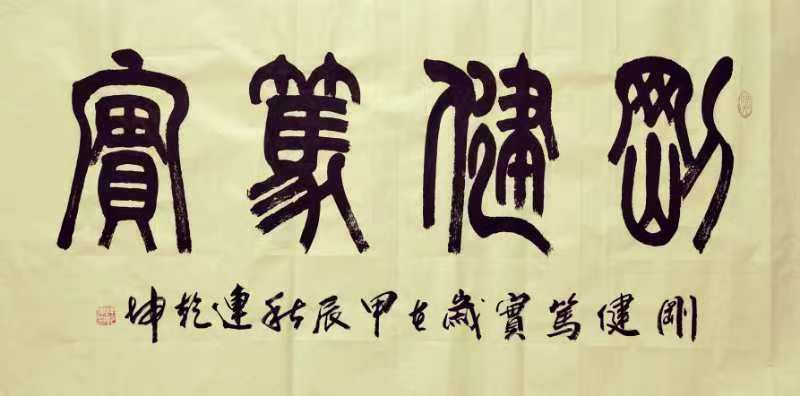 剛健篤實
剛健篤實歲在甲辰秋連乾坤